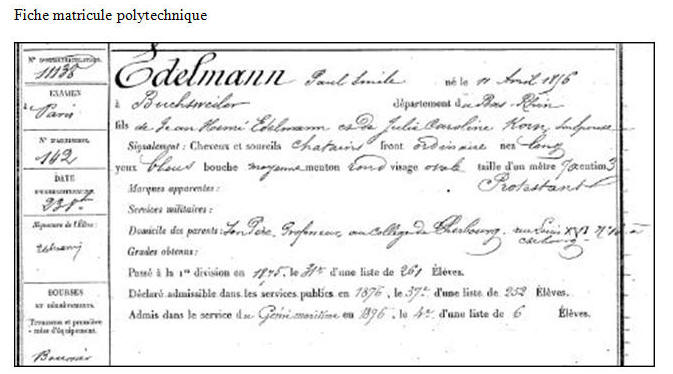 Fiche matricule polytechnique
N° D'IMMATRICULATION.
11138
EXAMEN
à Paris
N° D'ADMISSION.
162
DATE
Signature de l'Élève:
BOURSES
ET DÉGRÈVEMENTS.
Trousseau et première
mise d'équipement.
Boursier
Edelmann Paul Emile né le 11 Avril 1876
à Buchsweiler département du Bas-Rhin
fils de Jean Edelmann et de Julie Caroline
Signalement: Cheveux et sourcils chatains front ordinaire nez long
yeux bleus bouche moyenne menton rond visage ovale taille d'un mètre 70 centim 3
Marques apparentes: Protestant
Services militaires:
Domicile des parents: Son Père, Professeur, au Collège de Cherbourg, rue Louis XVI à
Cherbourg
Grades obtenus:
Passé à la 1re division en 1875, le 31e d'une liste de 261 Élèves.
Déclaré admissible dans les services publics en 1876, le 37e d'une liste de 252 Élèves.
Admis dans le service du Génie maritime en 1896, le 4e d'une liste de 6 Élèves.